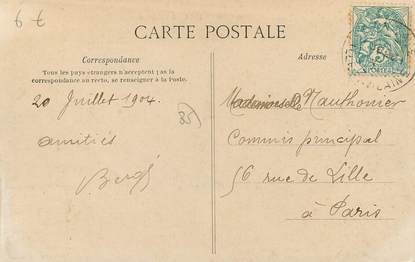 6 €
CARTE POSTALE
Correspondance
Tous les pays étrangers n'acceptent pas la
correspondance au recto, se renseigner à la Poste.
Adresse
20 Juillet 1904.
amitiés
85)
Mademoiselle Nauthonier
Commis principal
56 rue de Lille
à Paris